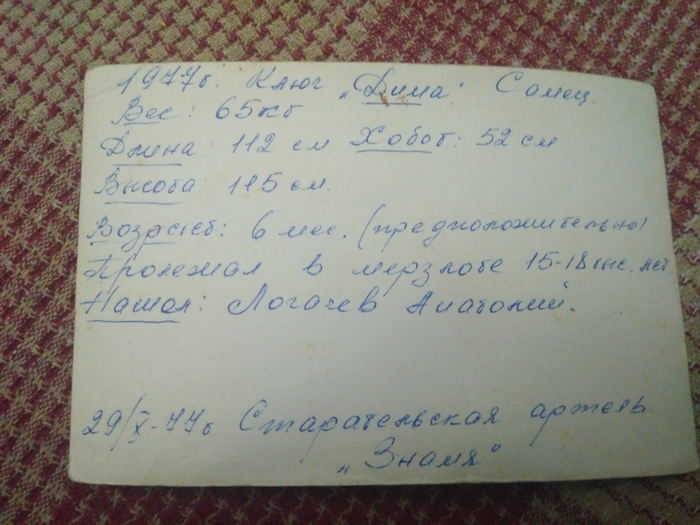 1977г. Ключ „Дима“ Самец.
Вес: 65кг
Длина: 112 см Хобот: 52 см
Высота: 115 см.
Возраст: 6 мес. (предположительно)
Пролежал в мерзлоте 15-18 тыс. лет
Нашел: Логачев Анатолий.
29/X-77г Старательская артель
„Знамя“